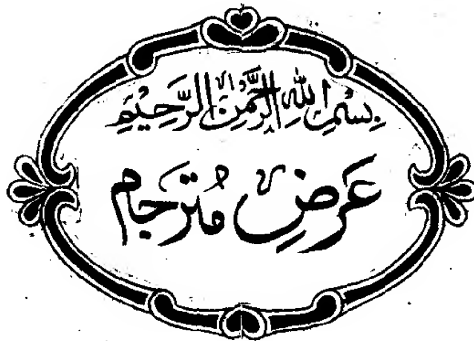 بِسْمِ اللهِ الرَّحْمٰنِ الرَّحِيْمِ
عَرَضِ مُترجام